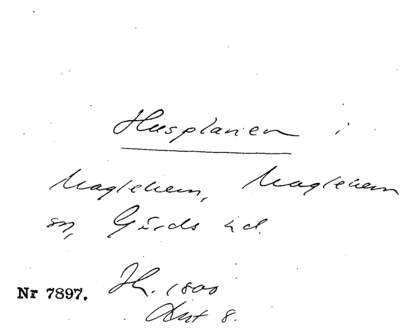 Husplanen i
Maglehem, Maglehem
sn, Gärds hd.
Nr 7897. H. 1800